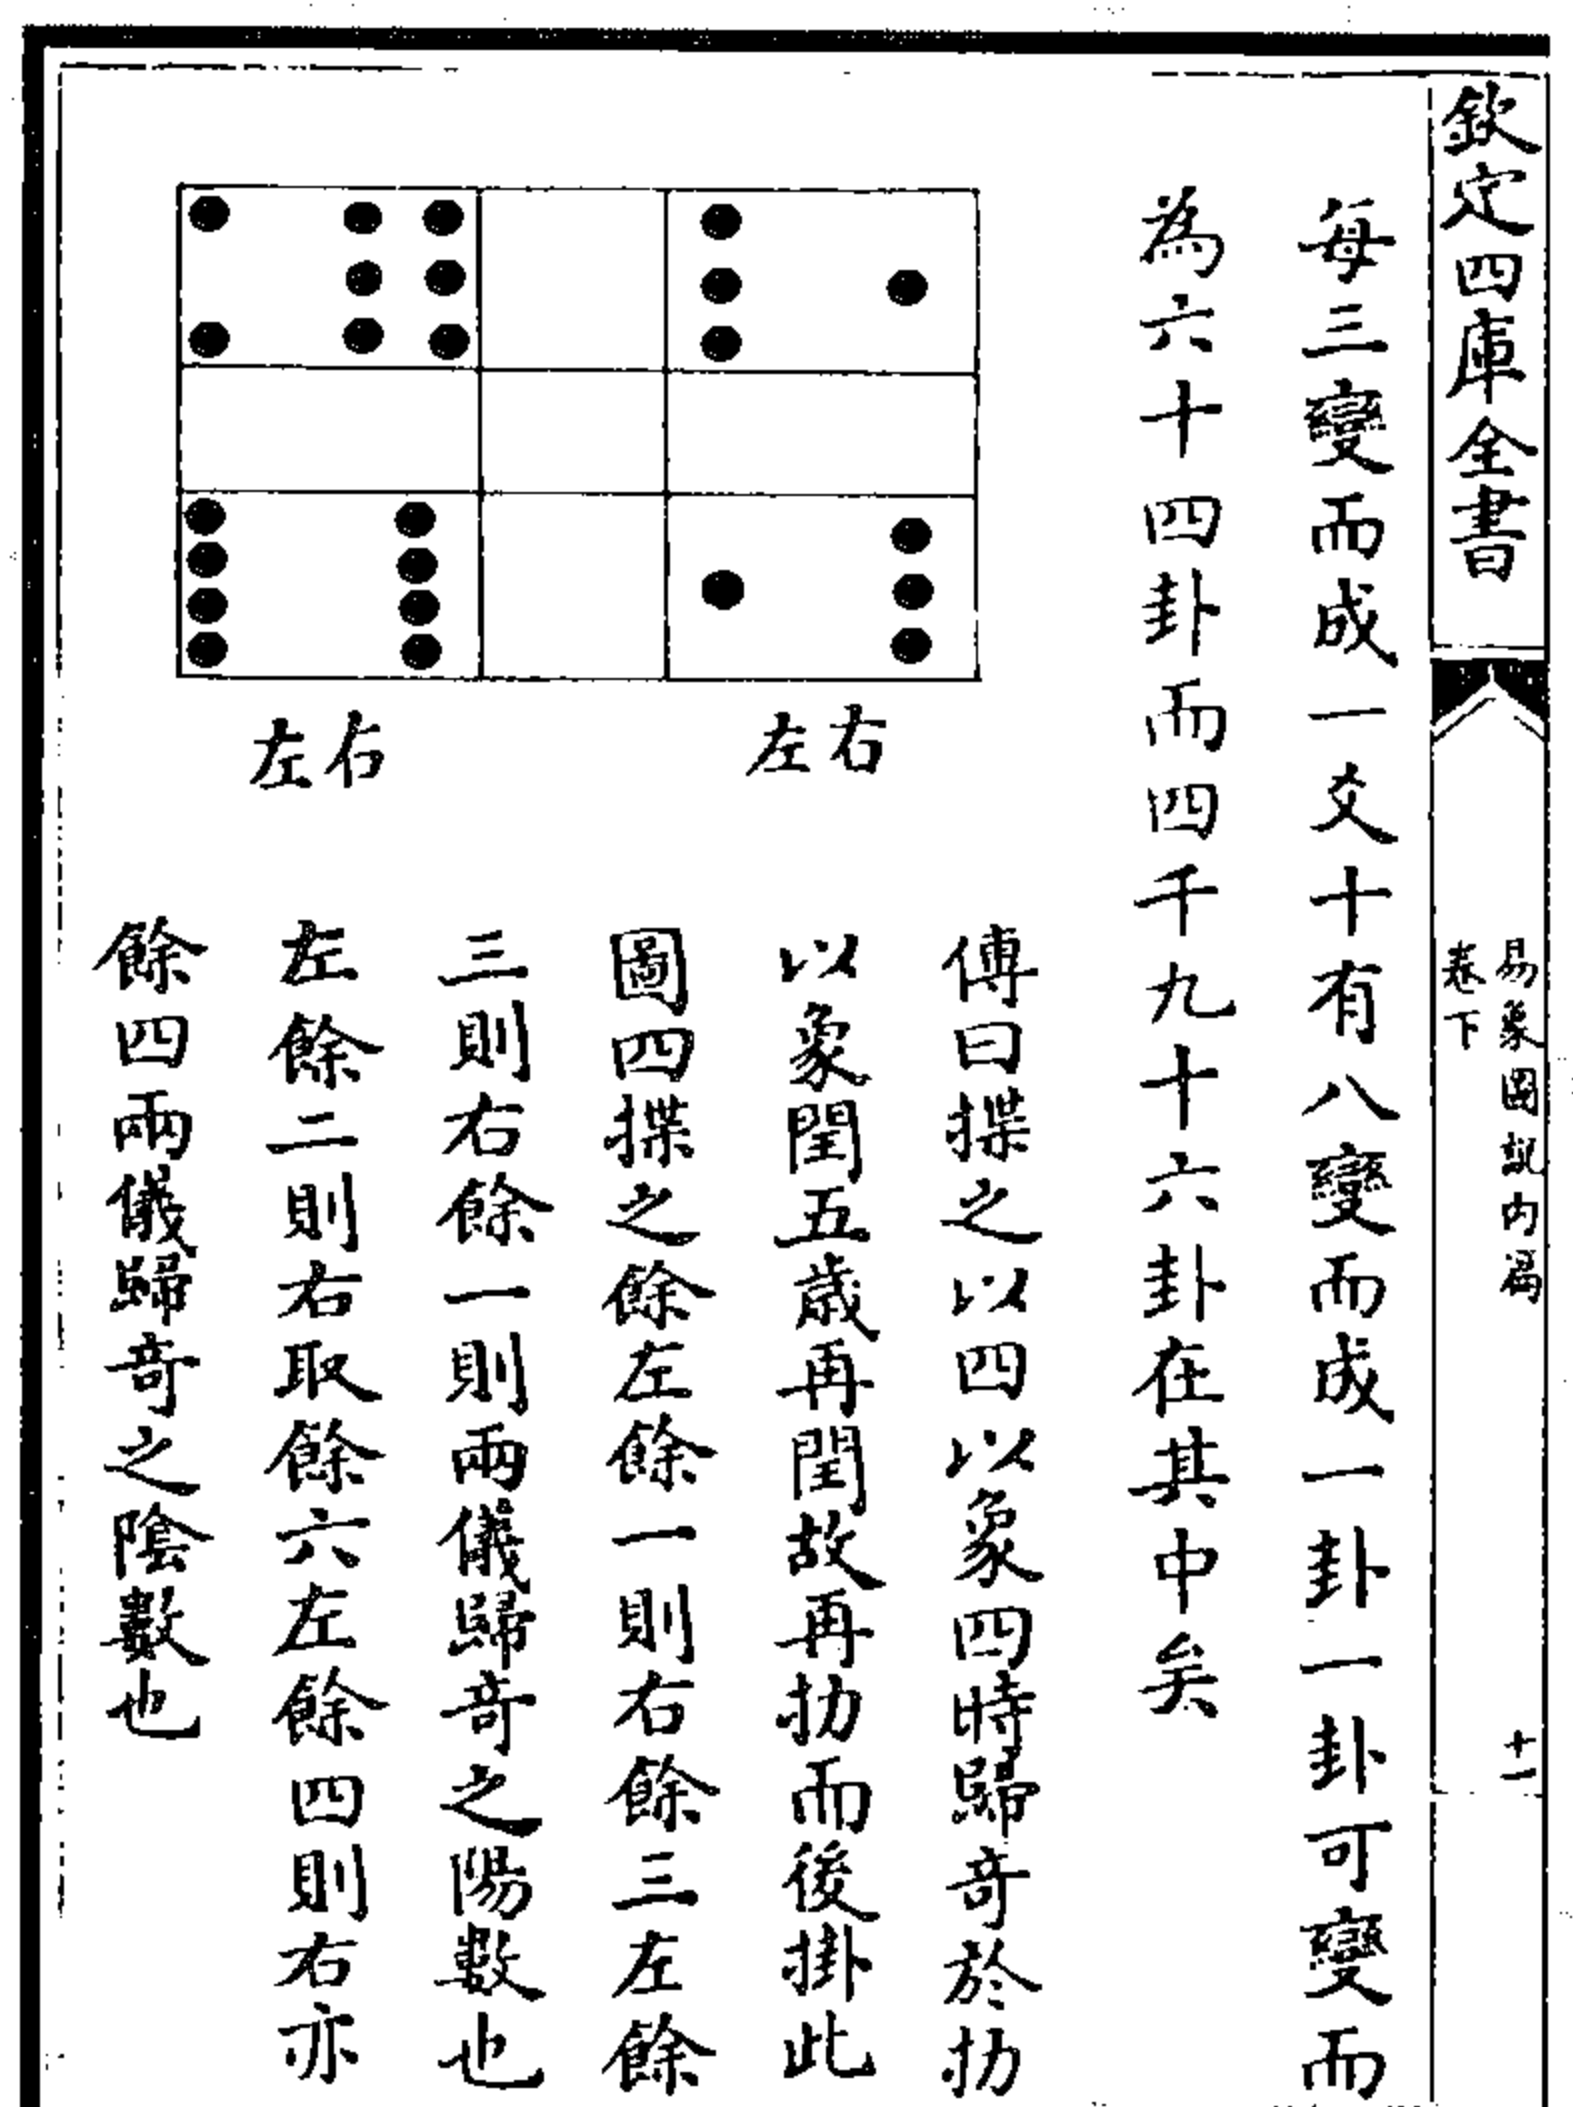 欽定四庫全書
易象圖說內篇
卷下
十一
每三變而成一爻十有八變而成一卦一卦可變而
為六十四卦而四千九十六卦在其中矣
右
左
右
左
傳曰揲之以四以象四時歸奇於扐
以象閏五歲再閏故再扐而後掛此
圖四揲之餘左餘一則右餘三左餘
三則右餘一則兩儀歸奇之陽數也
左餘二則右取餘六左餘四則右亦
餘四兩儀歸奇之陰數也